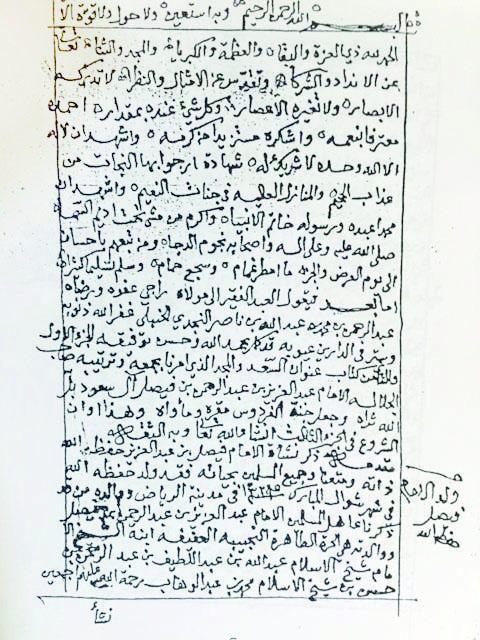 بسم الله الرحمن الرحيم وبه استعين ولا حول ولا قوة الا
الحمد لله ذي العزة والبقاء والعظمة والكبرياء والمجد والثناء تعالى
عن الانداد والشركاء وتقدس عن الامثال والنظراء لا تدركه
الابصار ولا تغيره الاعصار وكل شيء عنده بمقدار احمده
معترفا بنعمه واشكره مستزيدا من كرمه واشهد ان لا اله
الا الله وحده لا شريك له شهادة ارجو بها النجات من
عذاب الجحيم والمنازل العليه في جنات النعيم واشهد ان
محمدا عبده ورسوله خاتم الانبياء واكرم من مشى تحت اديم السماء
صلى الله عليه وعلى اله واصحابه نجوم الدجاه ومن تبعهم باحسان
الى يوم العرض والجزاء ما امطر غمام وسجع حمام وسلم تسليما كثيرا
اما بعد فيقول العبد الفقير الى مولاه راجي عفوه ورضاه
عبدالرحمن بن محمد بن عبدالله بن ناصر النجدي الحنبلي غفر الله ذنوبه
وستر في الدارين عيوبه قد كمل بحمد الله وحسن توفيقه الجزء الاول
والثاني من كتاب عنوان السعد والمجد الذي امرنا بجمعه وترتيبه صاحب
الجلاله الامام عبدالعزيز بن عبدالرحمن بن فيصل ال سعود بل
الله ثراه وجعل جنة الفردوس مقره وماواه وهذا اوان
الشروع في الجزء الثالث انشا والله تعالى وبه الثقه
ذكر نشاة الامام فيصل بن عبدالعزيز حفظه الله
ومتعنا وجميع المسلمين بحياته فقد ولد حفظه الله
في شهر شوال المبارك في مدينة الرياض ووالده من قد
ذكرنا عاهل المسلمين الامام عبدالعزيز بن عبدالرحمن بن فيصل
ووالدته هي الحرة الطاهرة النجيبه العفيفه ابنة الشيخ
امام شيخ الاسلام عبدالله بن عبداللطيف بن عبدالرحمن بن
حسن بن شيخ الاسلام محمد بن عبدالوهاب رحمة الله عليهم اجمعين
ولد الامام
فيصل
حفظه الله
نشأ